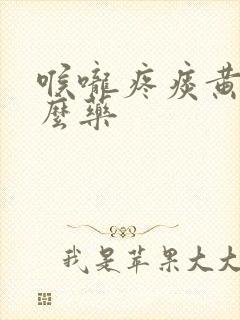 喉嚨疼痰黃
麼藥
我是苹果大大